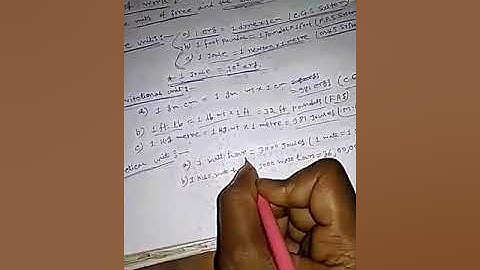 units of force and the
a) 1 erg = 1 dyne x 1cm (C.G.S System)
b) 1 foot Poundal = 1 Poundal x 1 foot (F.P.S System)
c) 1 Joule = 1 newton x 1 metre (M.K.S System)
* 1 Joule = 10⁷ erg.
Gravitational units:-
a) 1 gm cm = 1 gm wt x 1 cm = 981 ergs (C.G
b) 1 ft lb = 1 lb wt x 1 ft = 32 ft Poundals (F.P.S)
c) 1 kg metre = 1 kg wt x 1 metre = 9.81 Joules (M.
units:-
a) 1 watt hour = 3600 Joules (1 watt = 1
b) 1 kilo watt = 1000 watt hour = 36,00,0